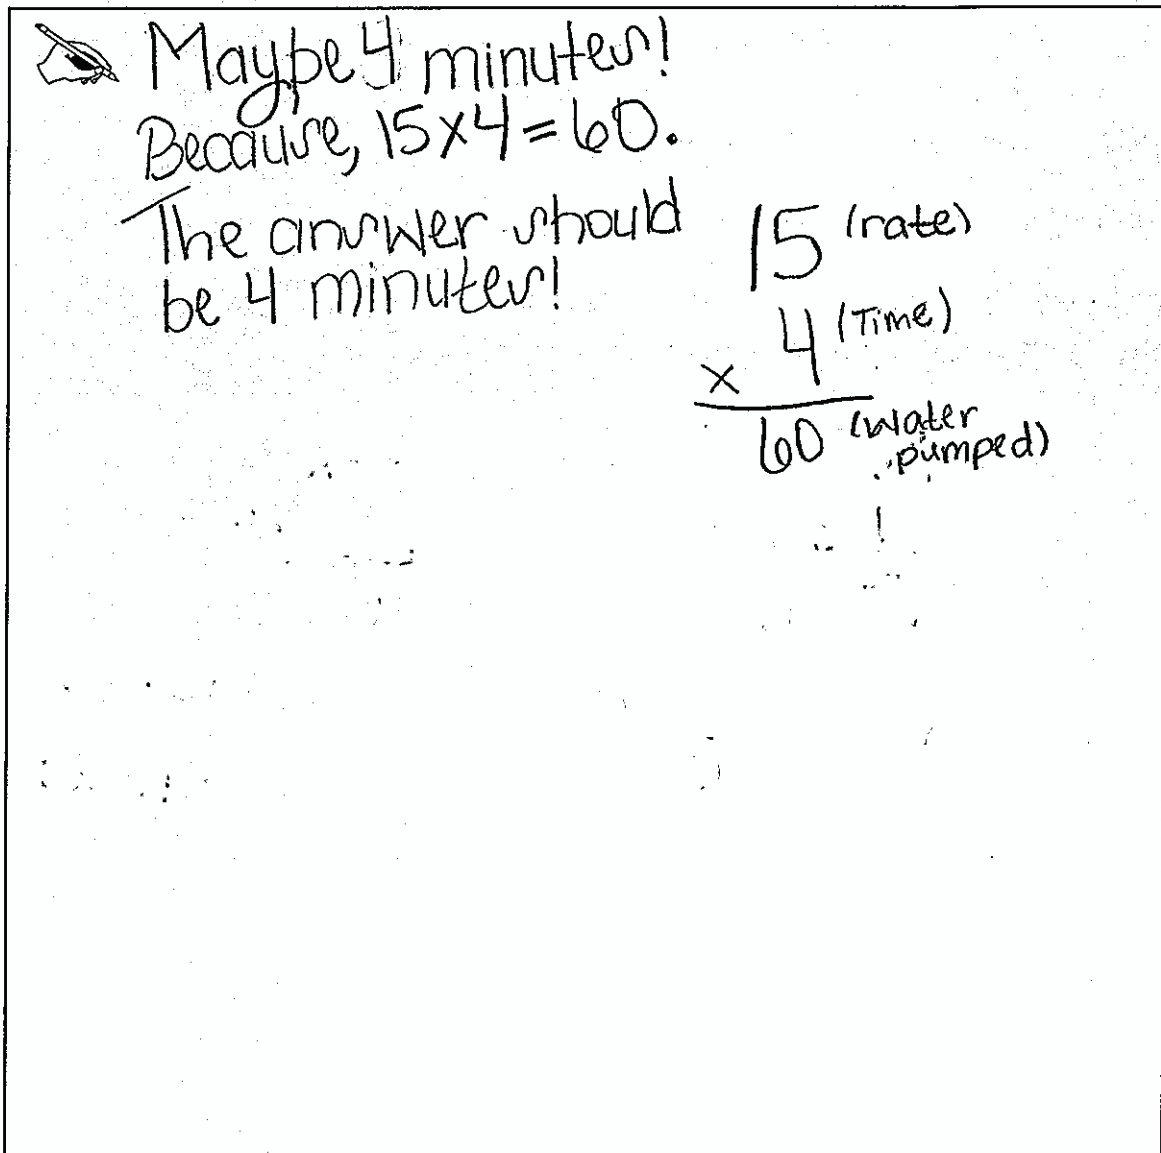 Maybe 4 minutes!
Because, 15x4=60.
The answer should
be 4 minutes!
15 (rate)
4 (Time)
x
60 (water
pumped)